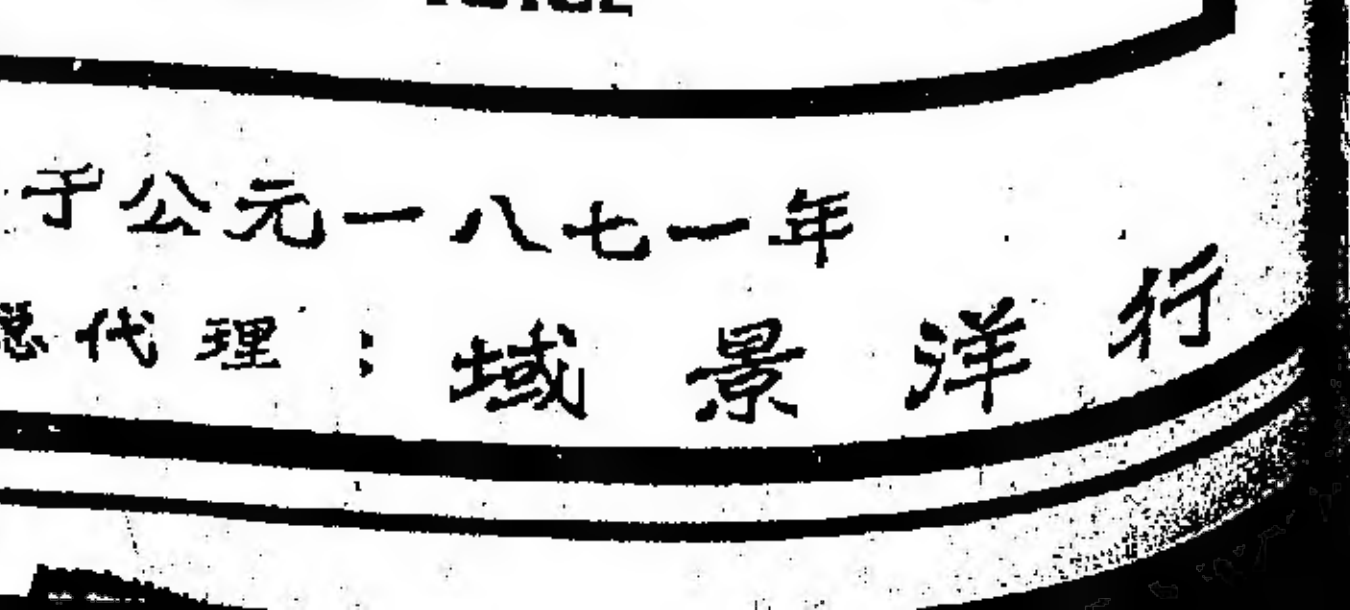 于公元一八七一年
总代理：域景洋行